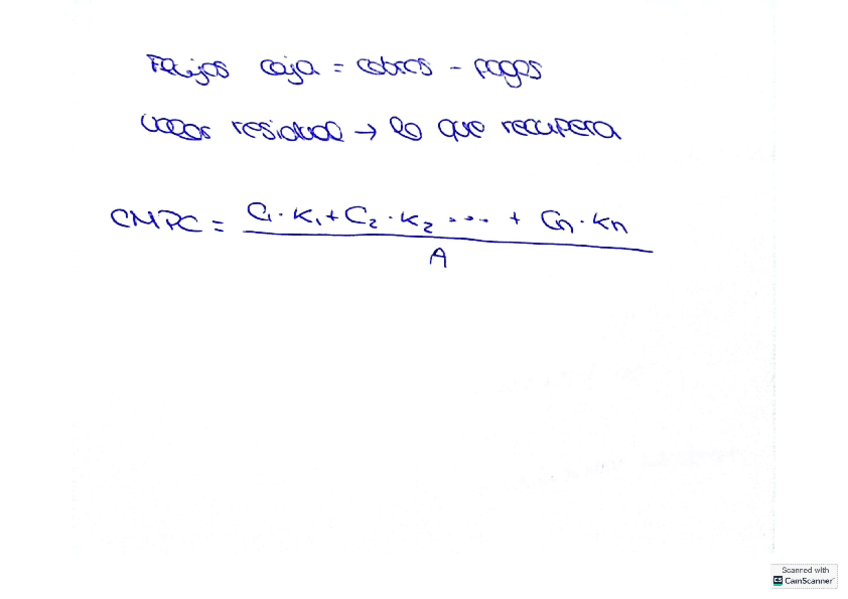 Flujos caja = cobros - pagos
Valor residual → lo que recupera
CMPC = (C1 · K1 + C2 · K2 .... + Cn · Kn) / A
Scanned with
CS CamScanner